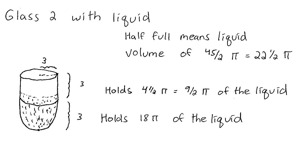 Glass 2 with liquid
Half full means liquid
volume of 45/2 π = 22 1/2 π
3
3
Holds 4 1/2 π = 9/2 π of the liquid
3
Holds 18π of the liquid